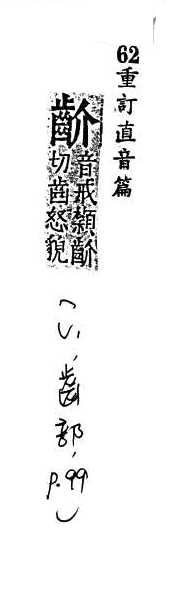 62重訂直音篇
齘
音戒齘
切齒怒貌
齒部, p.99)